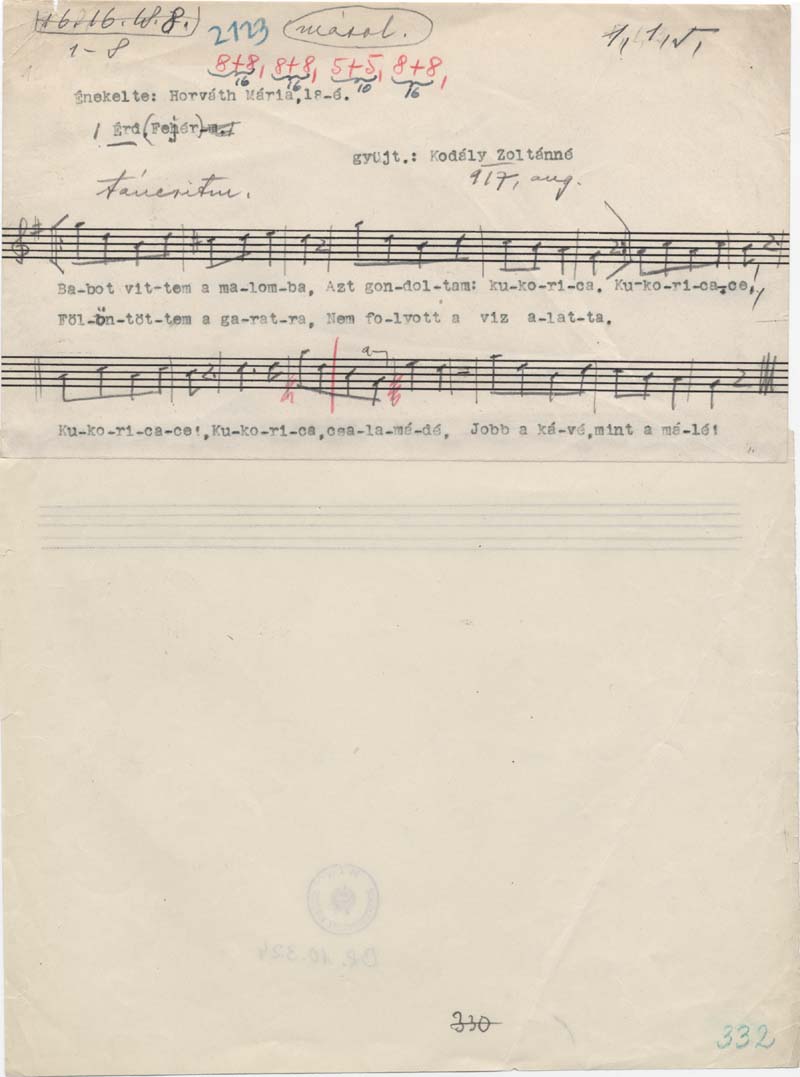 16.16.10.8.
2123
másol.
1, 1, V,
1-8
8+8, 8+8, 5+5, 8+8,
16 16 10 16
Énekelte: Horváth Mária,18-é.
Érd.(Fejér)
gyüjt.: Kodály Zoltánné
917, aug.
táncritm.
Ba-bot vit-tem a ma-lom-ba, Azt gon-dol-tam: ku-ko-ri-ca. Ku-ko-ri-ca-ce,
Föl-ön-töt-tem a ga-rat-ra, Nem fo-lyott a viz a-lat-ta.
Ku-ko-ri-ca-ce!,Ku-ko-ri-ca,csa-la-má-dé, Jobb a ká-vé,mint a má-lé!
Br. 10.324
330
332